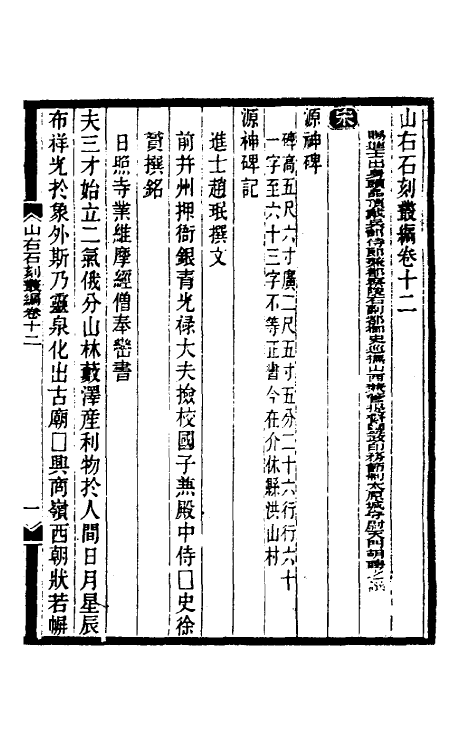 山右石刻叢編卷十二
賜進士出身頭品頂戴兵部侍郎兼都察院右副都御史巡撫山西兼管提督鹽政印務節制太原城守尉天門胡聘之撰
宋
源神碑
碑高五尺六寸廣二尺五寸五分二十六行行六十
一字至六十三字不等正書今在介休縣洪山村
源神碑記
進士趙珉撰文
前并州押衙銀青光祿大夫檢校國子祭酒兼殿中侍□史徐
贇撰銘
日照寺業維摩經僧奉巒書
夫三才始立二氣俄分山林藪澤產利物於人間日月星辰
布祥光於象外斯乃靈泉化出古廟□興商嶺西朝狀若㡡
山右石刻叢編卷十二
一